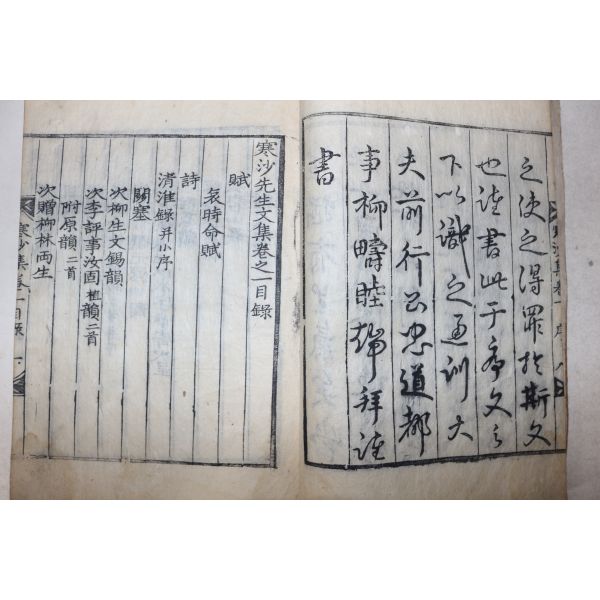 寒沙集卷一 序 八
之使之得罪於斯文
也謹書此于序文之
下以識之通訓大
夫前行公忠道都
事柳疇睦 拜謹
書
寒沙先生文集卷之一目錄
賦
哀時命賦
詩
清淮錄并小序
關塞
次柳生文錫韻
次李評事汝固植韻二首
附原韻二首
次贈柳林両生
寒沙集卷一目錄 一